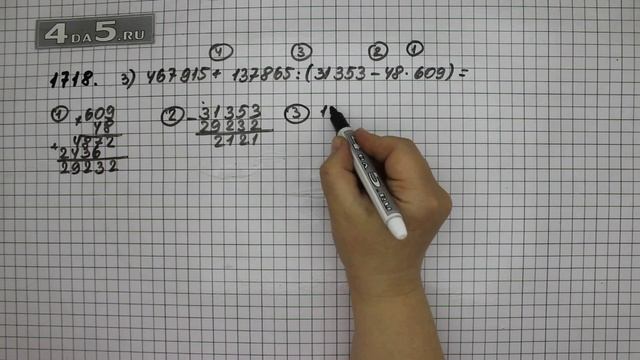 4DA5.RU
④ ③ ② ①
1718. 3) 467915 + 137865 : (31353 - 48 · 609) =
① × 609
48
+ 4872
2436
29232
② - 31353
29232
2121
③ 1